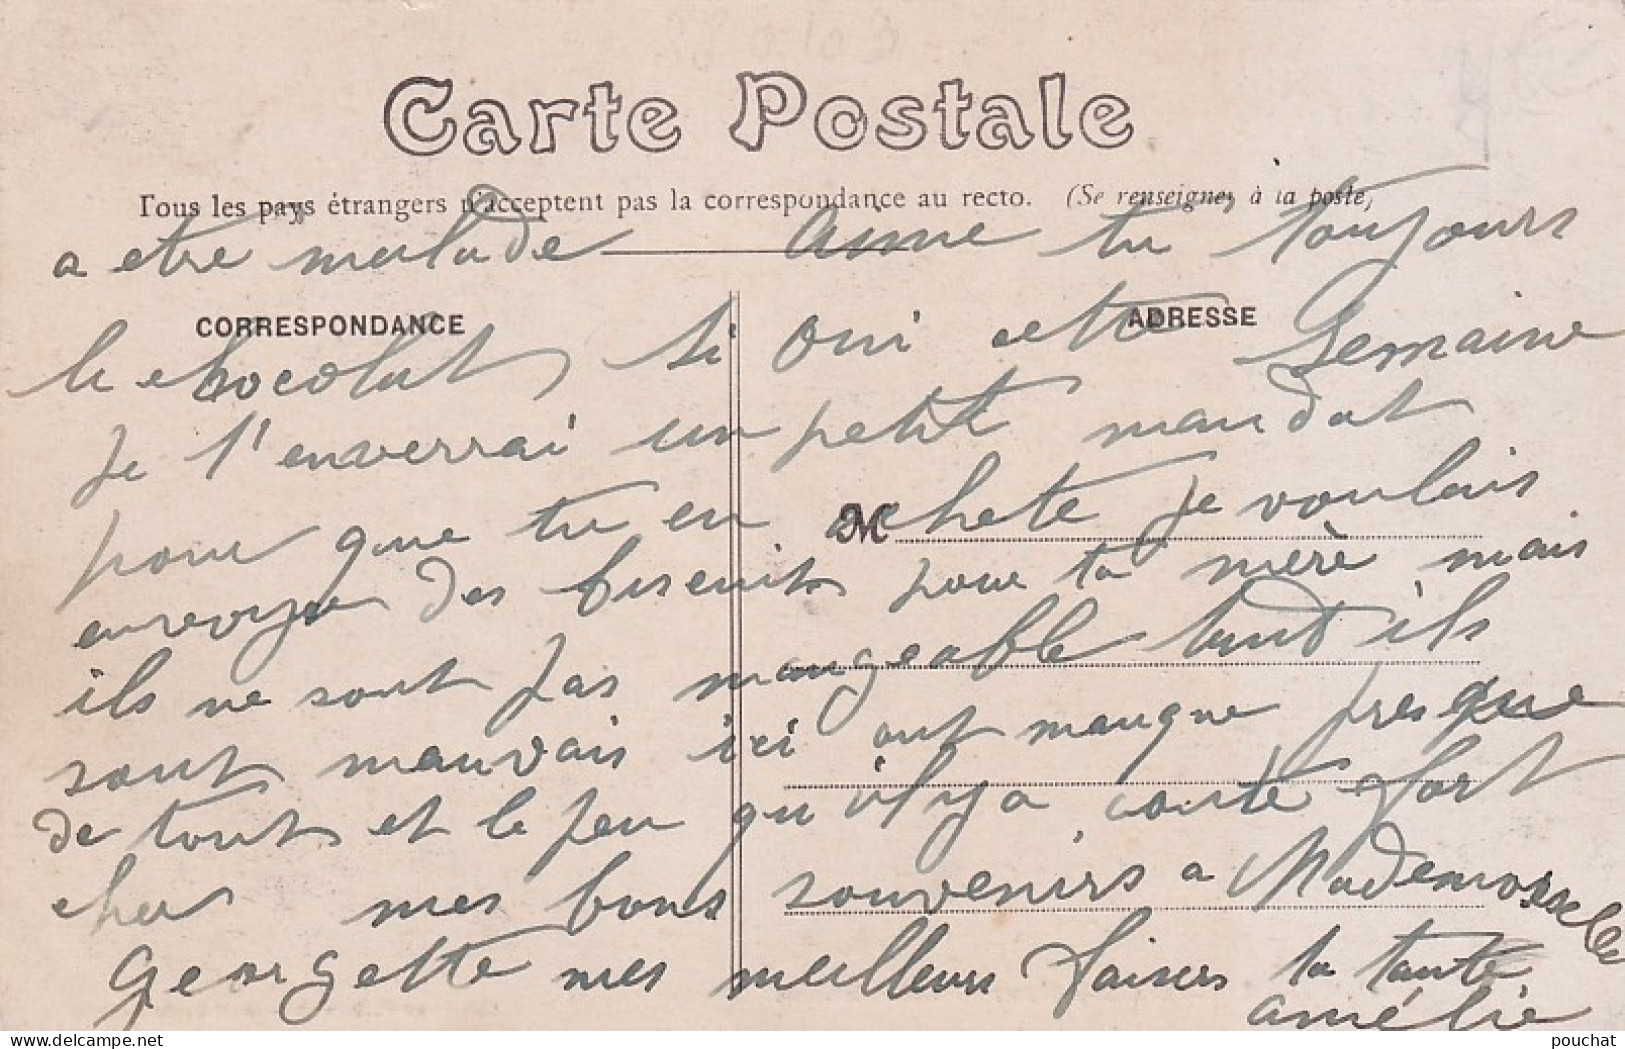 Carte Postale
Tous les pays étrangers n'acceptent pas la correspondance au recto. (Se renseigner à la poste)
a etre malade aime tu toujours
CORRESPONDANCE ADRESSE
le chocolat si oui cette Semaine
je t'enverrai un petit mandat
pour que tu en achete je voulais
M
envoyer des biscuits pour ta mère mais
ils ne sont pas mangeable tant ils
sont mauvais ici ont manque presque
de tout et le peu qu'il y a coute fort
cher mes bons souvenirs a Mademoiselle
Georgette mes meilleurs baisers ta tante
amélie
www.delcampe.net pouchat